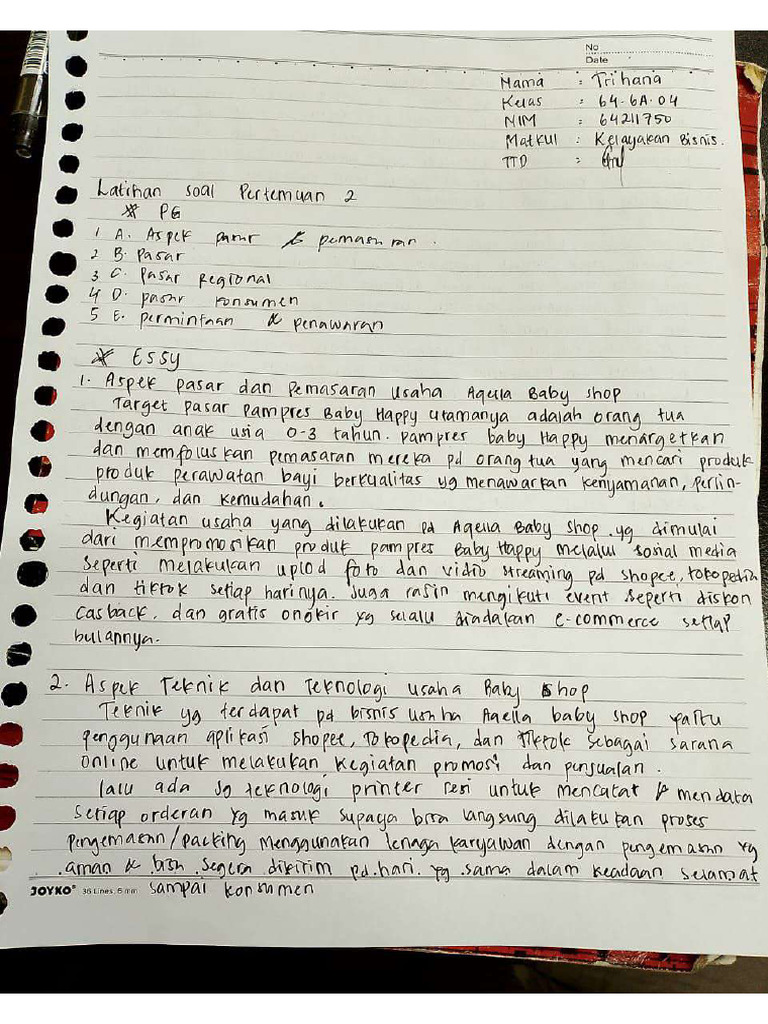 No
Date
Nama : Trihana
Kelas : 64-6A-04
NIM : 64211750
Matkul : Kelayakan Bisnis.
TTD :
Latihan soal Pertemuan 2
* PG
1 A. Aspek pasar & pemasaran.
2 B. Pasar
3 C. Pasar Regional
4 D. pasar konsumen
5 E. permintaan & penawaran
* Essy
1. Aspek pasar dan Pemasaran usaha Aqella Baby shop
Target pasar pampres Baby Happy utamanya adalah orang tua
dengan anak usia 0-3 tahun. pampres baby Happy menargetkan
dan memfoluskan pemasaran mereka pd orang tua yang mencari produk
produk perawatan bayi berkualitas yg menawarkan kenyamanan, perlin-
dungan, dan kemudahan.
Kegiatan usaha yang dilakukan pd Aqella Baby Shop yg dimulai
dari mempromosikan produk pampres Baby Happy melalui sosial media
seperti melakukan uplod foto dan vidio streaming pd shopee, tokopedia
dan tiktok setiap harinya. Juga rasin mengikuti event seperti diskon
casback, dan gratis ongkir yg selalu diadakan e-commerce setiap
bulannya.
2. Aspek Teknik dan Teknologi usaha Baby Shop
Teknik yg terdapat pd bisnis usaha Aqella baby shop yaitu
penggunaan aplikasi shopee, Tokopedia, dan Tiktok sebagai sarana
online untuk melakukan kegiatan promosi dan penjualan.
lalu ada jg teknologi printer resi untuk mencatat & mendata
setiap orderan yg masuk supaya bisa langsung dilakukan proses
pengemasan/packing menggunakan tenaga karyawan dengan pengemasan yg
aman & bisa segera dikirim pd hari yg sama dalam keadaan selamat
JOYKO 36 Lines, 6 mm sampai konsumen